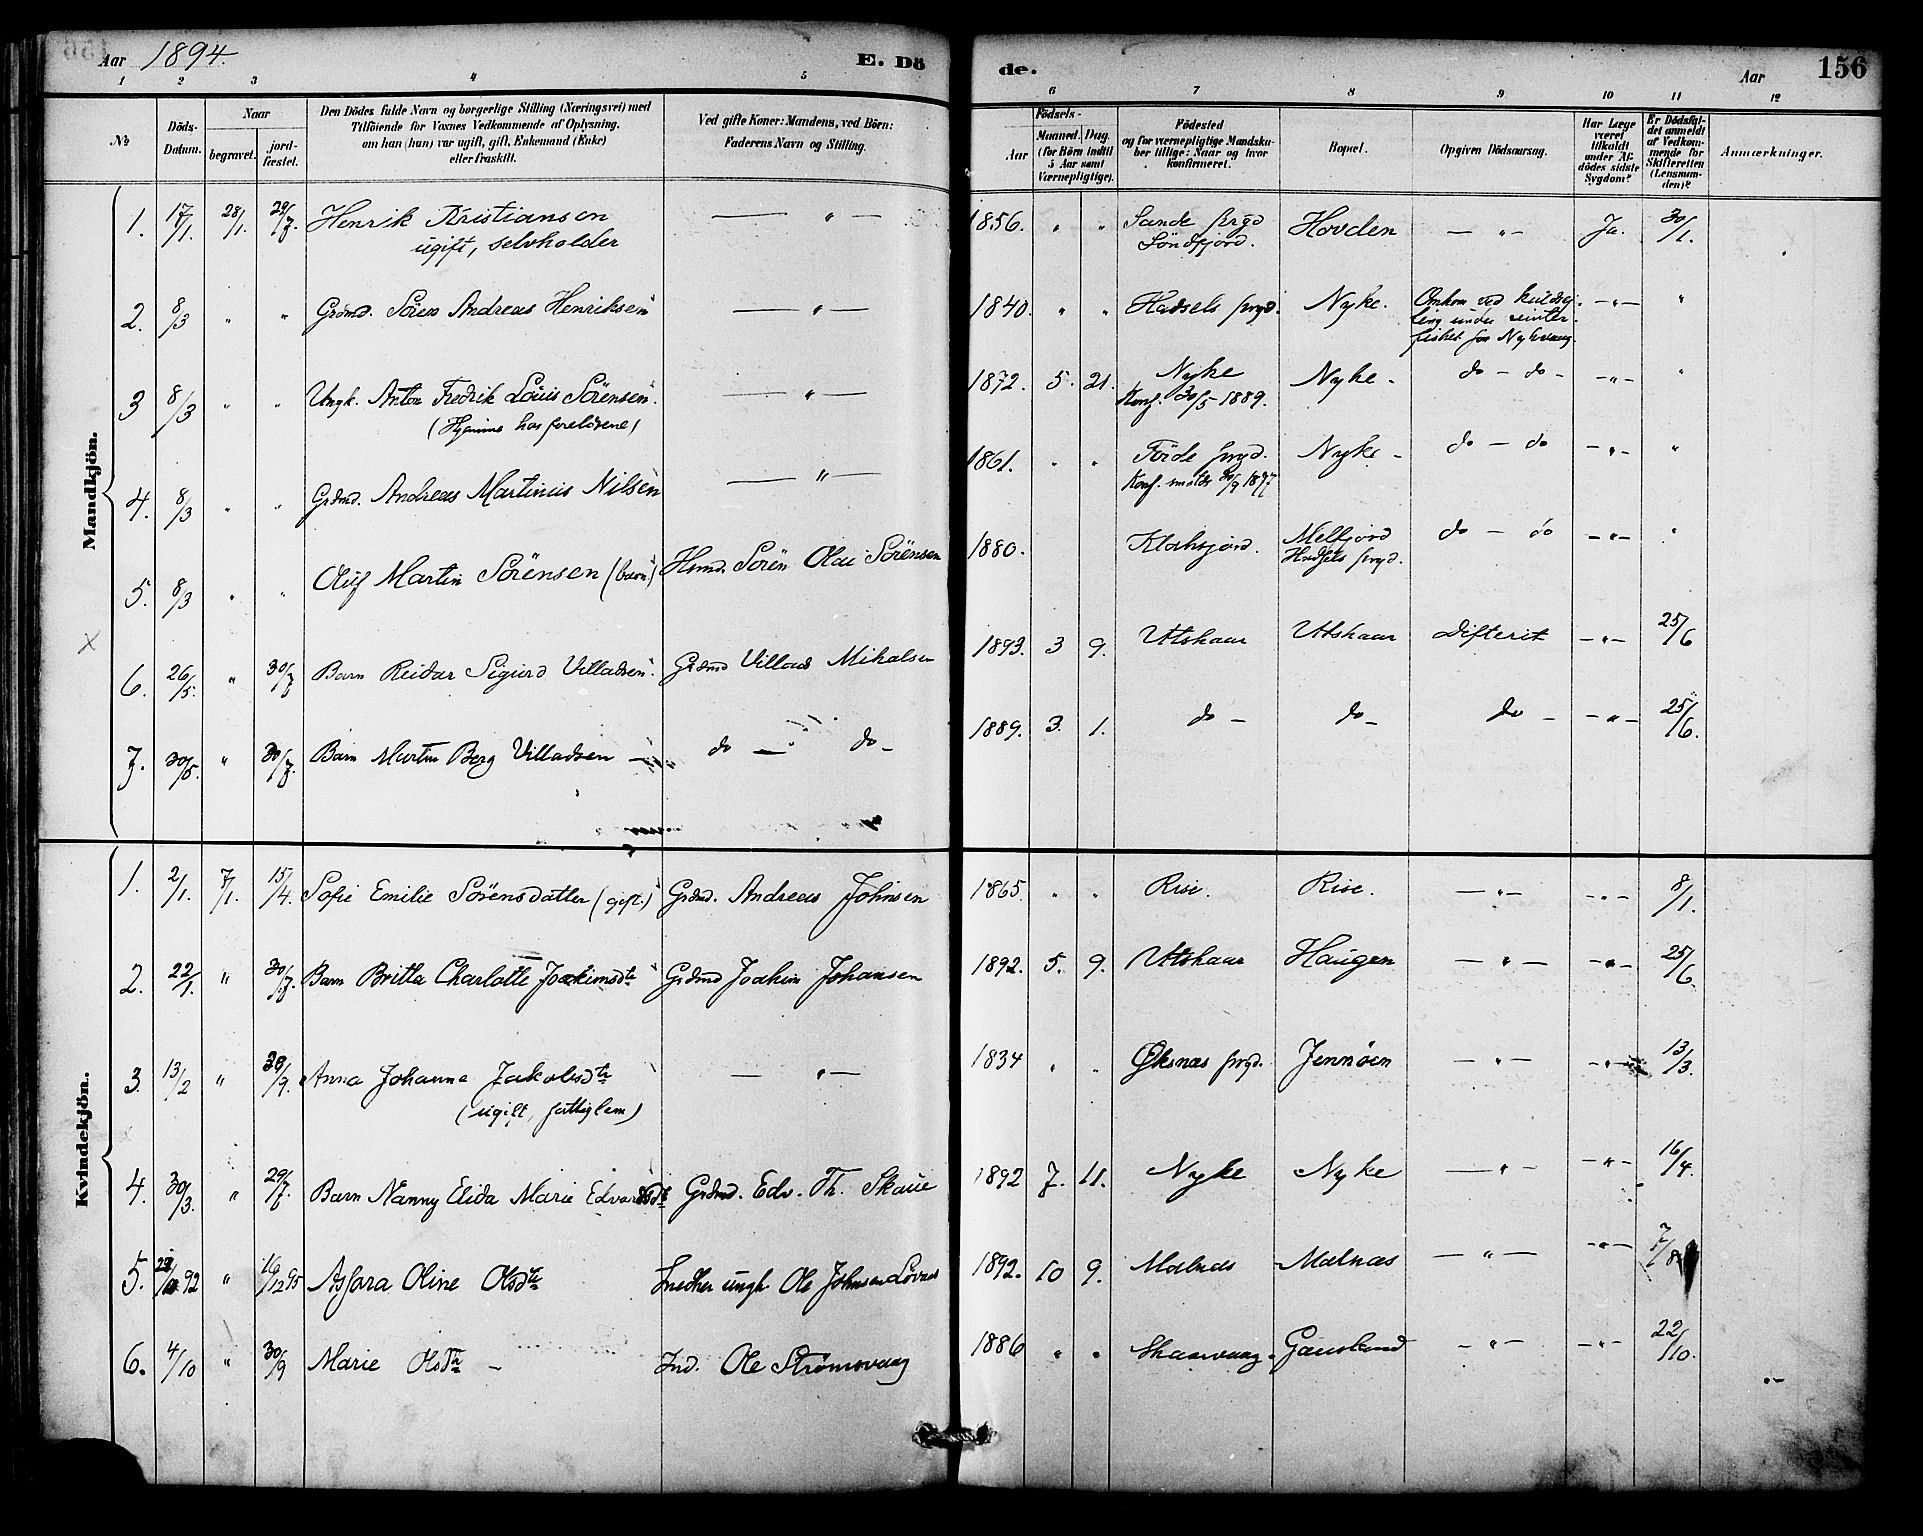 Aar 1894. E. Döde. Aar 156
1 2 3 4 5 6 7 8 9 10 11 12
No
Döds-Datum.
Naar
begravet.
jord-fæstet.
Den Dödes fulde Navn og borgerlige Stilling (Næringsvei) med
Tilföiende for Voxnes Vedkommende af Oplysning,
om han (hun) var ugift, gift, Enkemand (Enke)
eller fraskilt.
Ved gifte Koner: Mandens, ved Börn:
Faderens Navn og Stilling.
Födsels-
Aar
Maaned. Dag.
(for Börn indtil
5 Aar samt
Værnepligtige).
Födested
og for værnepligtige Mandsku-
ber tillige: Naar og hvor
konfirmeret.
Bopæl.
Opgiven Dödsaarsag.
Har Læge
været
tilkaldt
under Af-
dödes sidste
Sygdom?
Er Dödsfal-
det anmeldt
af Vedkom-
mende for
Skifteretten
(Lensman-
den)?
Anmærkninger.
Mandkjön.
1. 17/1. 28/1. 29/7. Henrik Kristiansen — " — 1856. " " Sande prgd Hovden — " — Ja. 30/1.
ugift, selvholder Söndfjord.
2. 8/3 " " Grdmd. Sören Andreas Henriksen — " — 1840. " " Hadsels prgd. Nyke. Omkom ved kuldsei- — " — "
ling under vinter-
fisket fra Nykvaag.
3 8/3 " " Ungk. Anton Fredrik Louis Sörensen. — " — 1872. 5. 21. Nyke Nyke - do - do - — " — "
(Hjemme hos forældrene) Konf. 30/5-1889.
4. 8/3 " " Grdmd. Andreas Martinius Nilsen — " — 1861. " " Förde prgd. Nyke - do - do — " — "
5. 8/3 " " Oluf Martin Sörensen (barn) Hsmd. Sören Olai Sörensen 1880. Klaksjord. Melfjord do - do — " — "
Hadsels prgd.
6. 26/5. " 30/7 Barn Reidar Sigurd Villadsen. Grdmd Villads Mikalsen 1893. 3 9. Utskaar Utskaar Difterit — " — 25/6
7. 30/5. " 30/7. Barn Martin Berg Villadsen — do — do - 1889. 3. 1. do - do - do - — " — 25/6.
Kvindekjön.
1. 2/1. 7/1. 15/4. Sofie Emilie Sörensdatter (gift.) Grdmd. Andreas Johnsen 1865. " " Rise. Rise. — " — — " — 8/1.
2. 22/1. " 30/7. Barn Britta Charlotte Joakimsdtr Grdmd Joakim Johansen 1892. 5. 9. Utskaar Haugen — " — — " — 25/6
3. 13/2 " 30/9. Anna Johanna Jakobsdtr — " — 1834 " " Øksnæs prgd. Jennöen — " — — " — 13/3.
(ugift, fattiglem)
4. 30/3. " 29/7. Barn Nanny Elida Marie Edvardsdtr Grdmd. Edv. Th. Skaue 1892 7. 11. Nyke Nyke — " — — " — 16/4.
5. 92 " 16/12 95 Asfara Oline Olsdtr Snedker ungk Ole Johnsen 1892. 10 9. Malnæs Malnæs — " — — " — 7/8
6. 4/10 " 30/9 Marie Olsdtr - Ind. Ole Strømsvaag 1886 " " Skaarvaag. Gaustand — " — — " — 22/10.